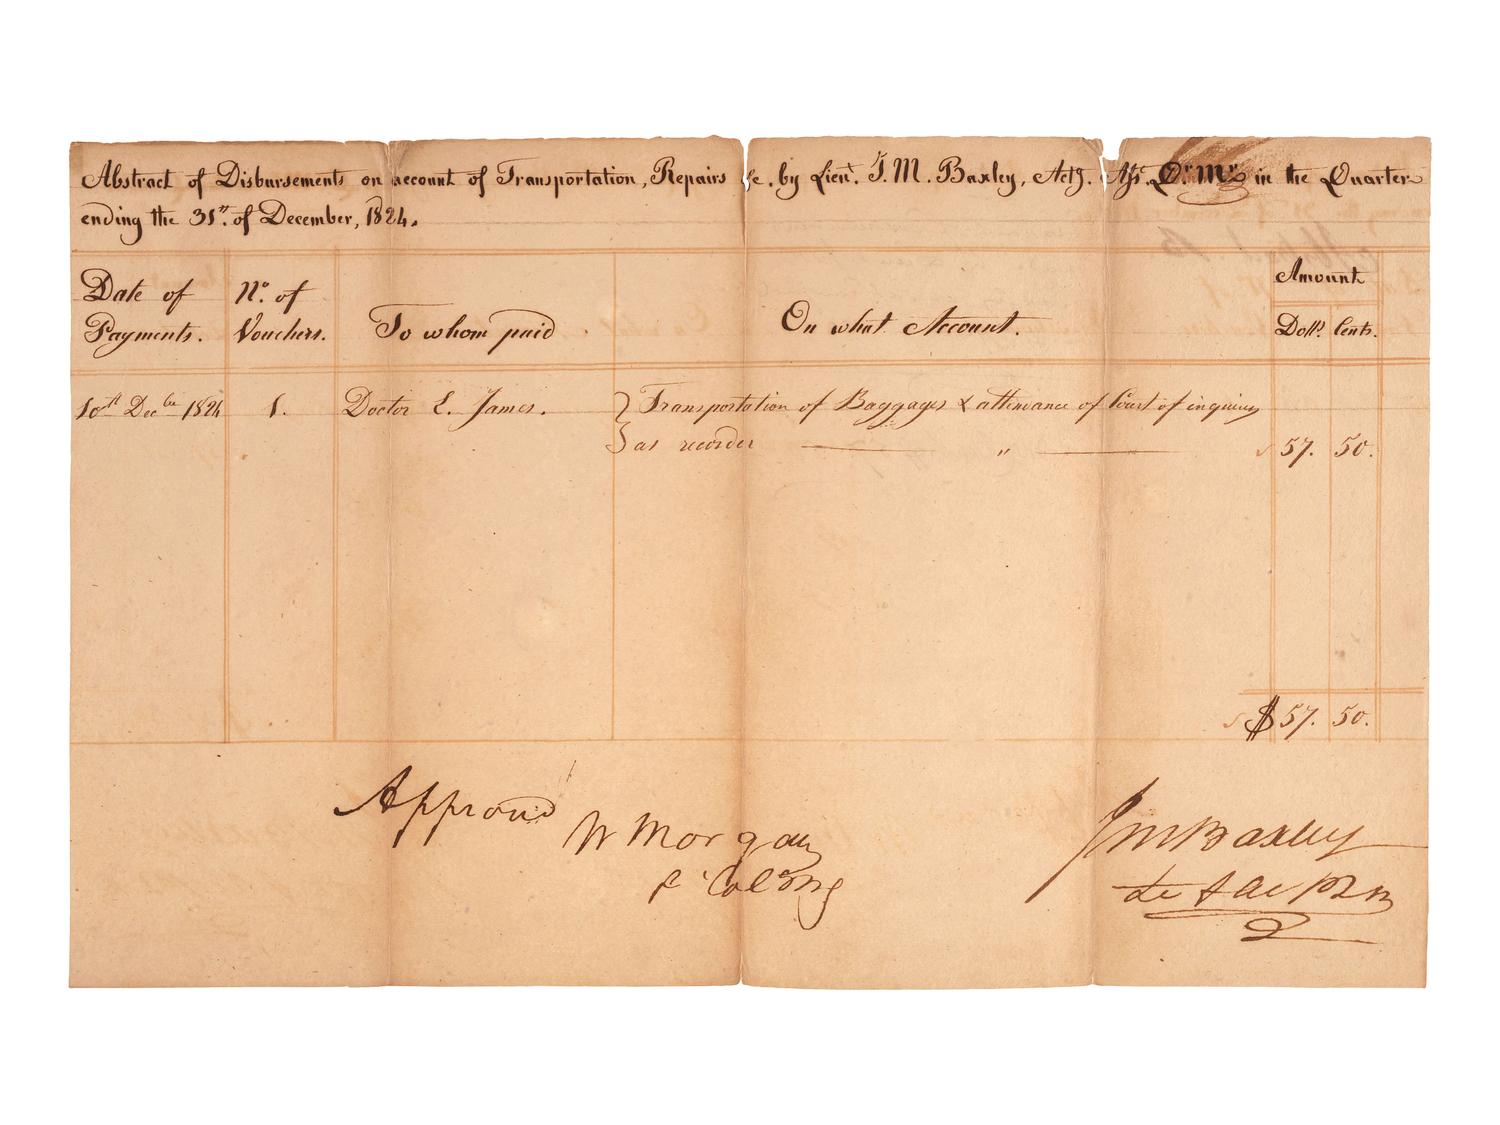 Abstract of Disbursements on account of Transportation, Repairs &c. by Lieut. J. M. Baxley, Actg. Asst. Qr. Mr. in the Quarter
ending the 31st. of December, 1824.
Date of Payments. No. of Vouchers. To whom paid On what Account. Amount
Dolls. Cents.
10th Decbr 1824 1. Doctor E. James. Transportation of Baggages & attendance of Court of inquiry
as recorder " 57. 50.
$ 57. 50.
Approved
W Morgan
Col
JM Baxley
Lt &